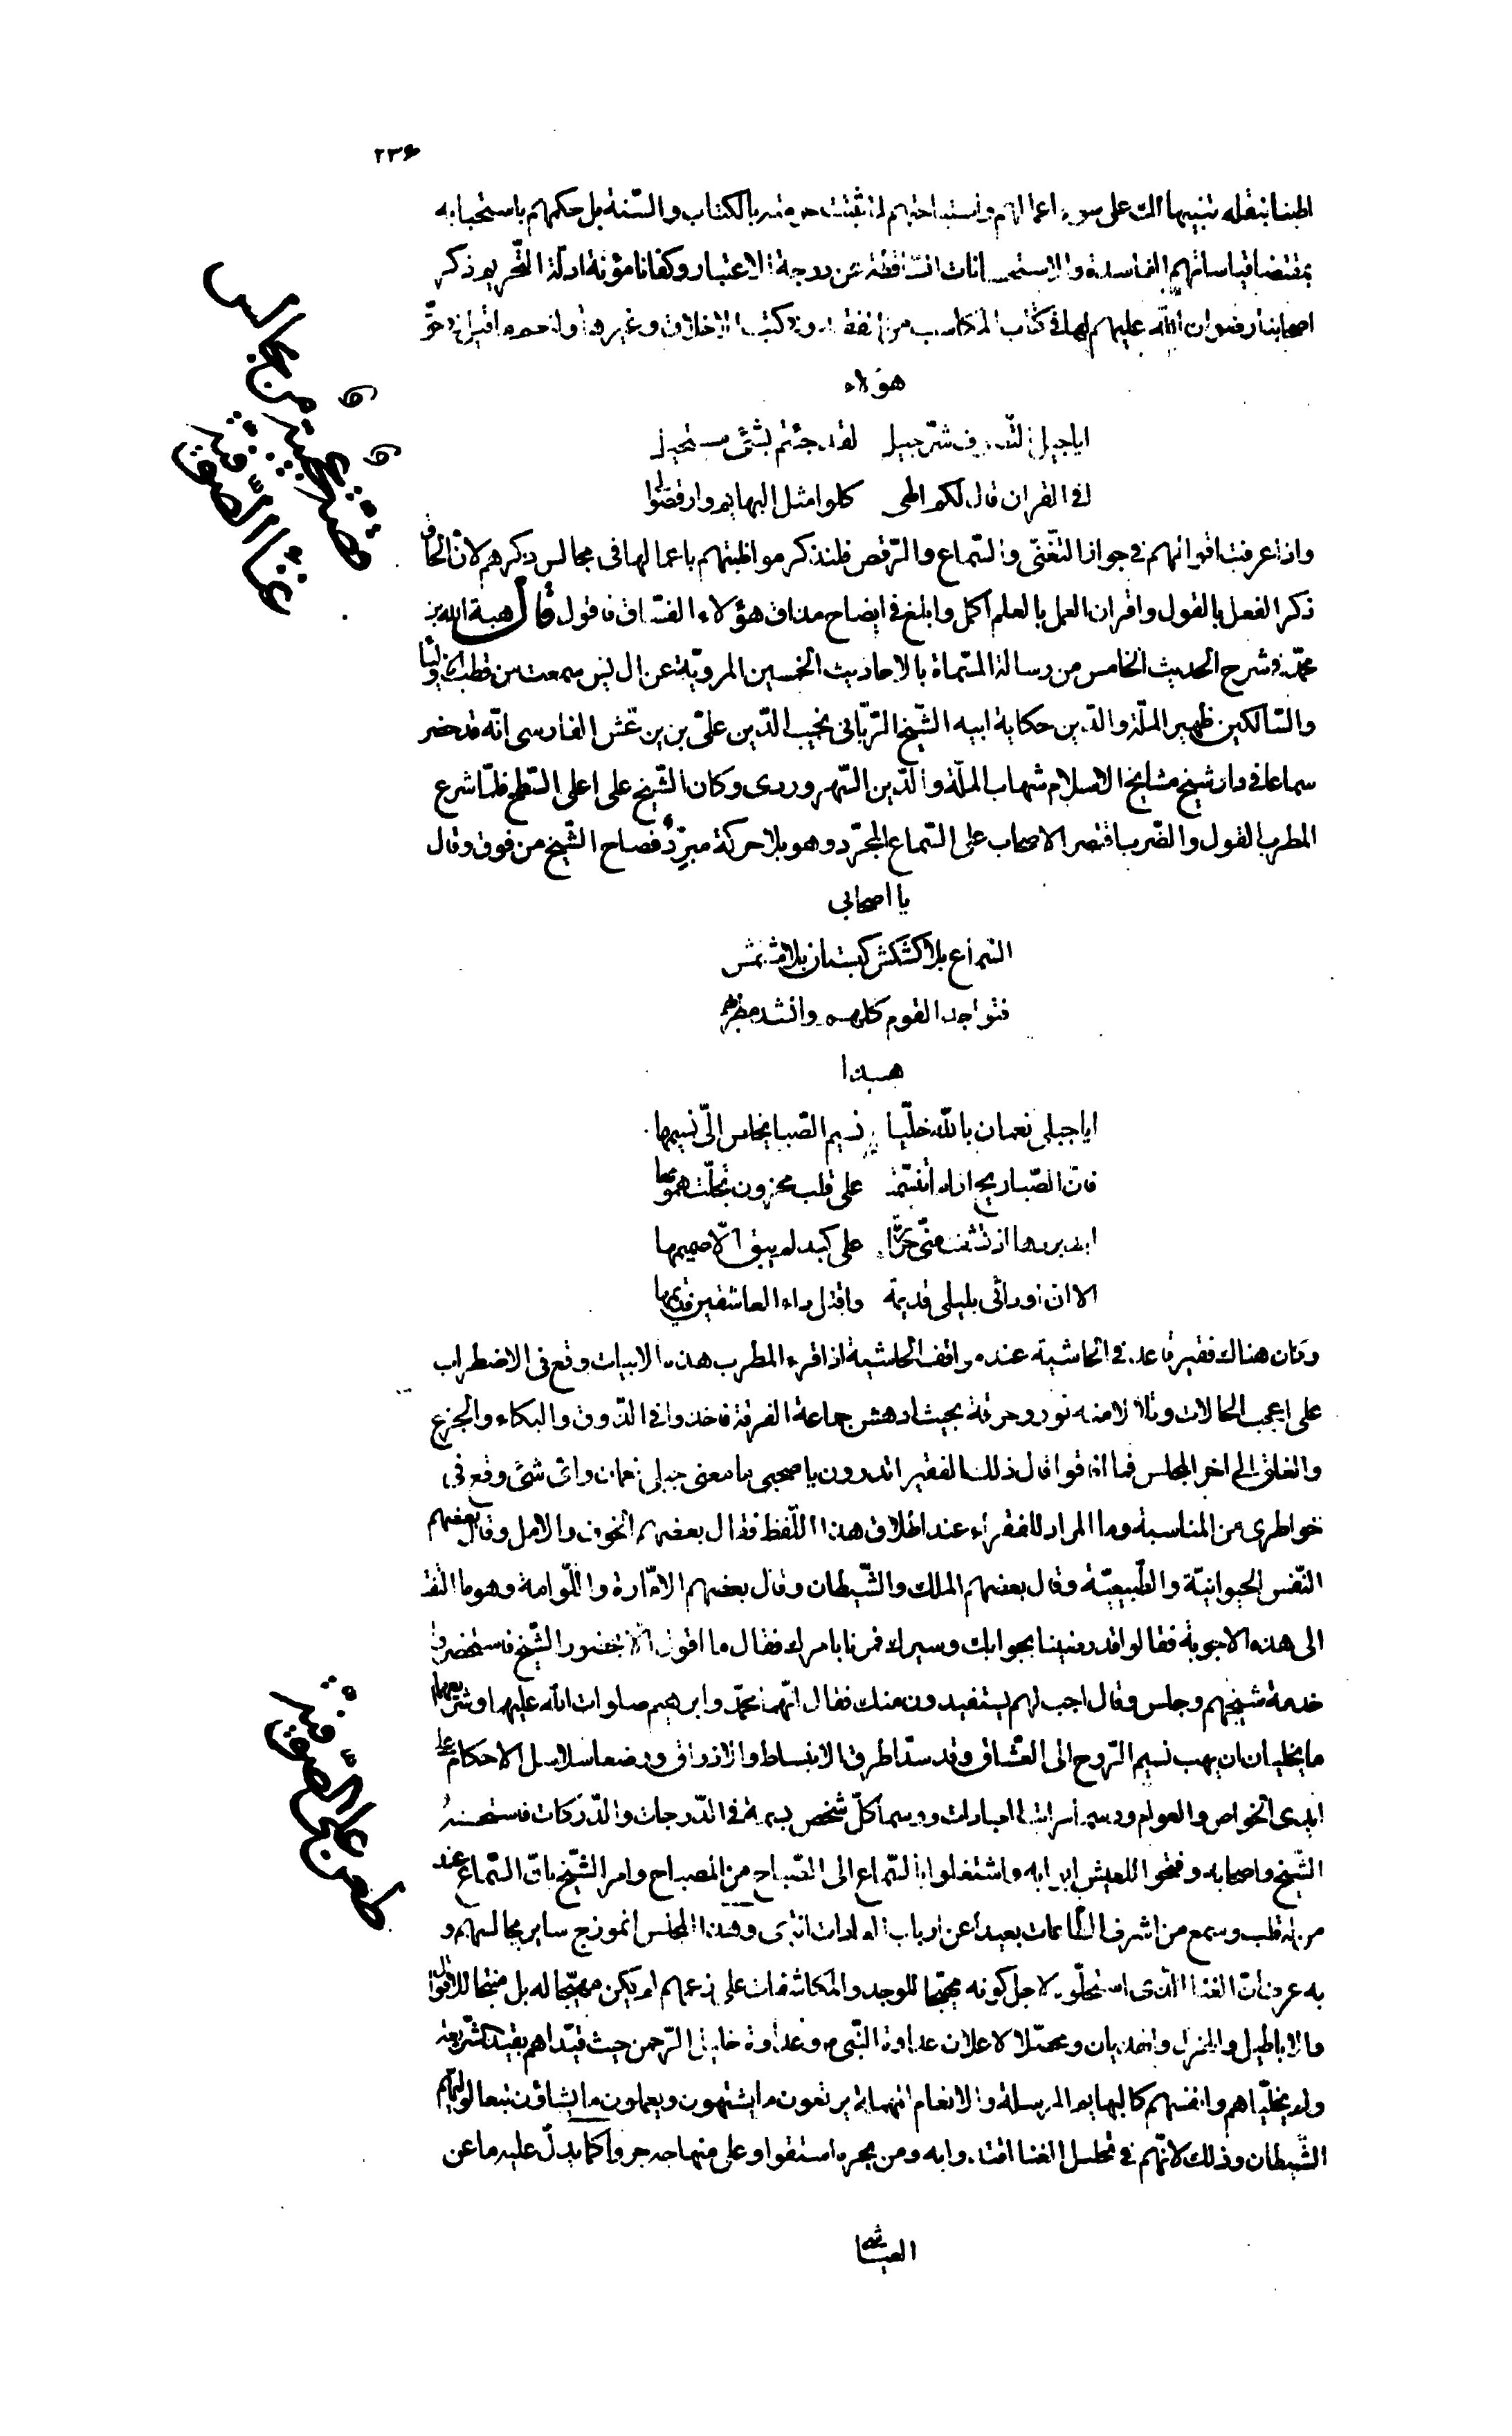 ٢٣۶
اطنبنا بنقله تنبيها لك على سوء اعمالهم واستباحتهم لما ثبتت حرمته بالكتاب والسّنة بل حكمهم باستحبابه
بمقتضا قياساتهم الفاسدة والاستحسانات السّاقطة عن درجة الاعتبار وكفانا مؤنة ادلّة التّحريم ذكر
اصحابنا رضوان اللّه عليهم لها فى كتاب المكاسب من الفقه وفى كتب الاخلاق وغيرها و حق
هؤلاء
ايا جيل التّصوّف شرّ جيل لقد جئتم بشئ مستحيل
افى القران قال لكم الهى كلوا مثل البهايم وارقصوا لى
واذا عرفت اقوالهم فى جواز التغنّى والسّماع والرّقص فلنذكر مواظبتهم باعمالها فى مجالس ذكرهم لانّ الحاق
ذكر الفعل بالقول واقران العمل بالعلم اكمل وابلغ فى ايضاح مذاق هؤلاء الفسّاق فاقول قال هبة الله بن
محمّد فى شرح الحديث الخامس من رسالة المسّماة بالاحاديث الخمسين المرويّة عن سمعت من قطب الاولياء
والسّالكين ظهير الملّة والدّين حكاية ابيه الشّيخ الرّبّانى نجيب الدّين علىّ بن بزغش الفارسى انّه قد حضر
سماعا فى دار شيخ مشايخ الاسلام شهاب الملّة والدّين السّهروردى وكان الشّيخ على اعلى السّطح فلمّا شرع
المطرب بالقول والضّرب اقتصر الاصحاب على السّماع المجرّد وهو بلا حركة مبرّد فصاح الشّيخ من فوق وقال
يا اصحابى
السّماع بلا كشكش كبستان بلا مشمش
فتواجد القوم كلهم وانشد مطربهم
هبذا
ايا جبلى نعمان باللّه خلّيا نسيم الصّبا يخلص الىّ نسيمها
فانّ الصّبا ريح اذا ما تنسّمت على قلب محزون تجلّت همومها
اجد بردها او تشف منّى حرارة على كبد لم يبق الّا صميمها
الا انّ ادوائى بليلى قديمة واقتل داء العاشقين قديمها
وكان هناك فقير قاعد فى الحاشية عنده مواقف الحاشية اذا قرء المطرب هذه الابيات وقع فى الاضطراب
على اعجب الحالات وتلألأ منه نور وحرقة بحيث ادهش جماعة الفرقة فاخذوا فى الذّوق والبكاء والجزع
والقلق الى اخر المجلس فما افاقوا قال ذلك الفقير اتدرون يا صحبى ما معنى جبلى نعمان واىّ شئ وقع فى
خواطرى من المناسبة وما المراد للفقراء عند اطلاق هذا اللّفظ فقال بعضهم الخوف والامل وقال بعضهم
النّفس الحيوانيّة والطّبيعيّة وقال بعضهم الملك والشّيطان وقال بعضهم الامّارة واللّوامة وهو ما التفت
الى هذه الاجوبة فقالوا قد رضينا بجوابك وسيرك فمرنا بامرك فقال ما اقول الّا بحضور الشّيخ فاستحضروا
خدمة شيخهم وجلس وقال اجب لهم يستفيدون منك فقال انّهما محمّد وابرهيم صلوات اللّه عليهما وشريعتهما
ما يخليان ان يهب نسيم الرّوح الى العشّاق وقد سدّا طرق الانبساط والاذواق ووضعا سلاسل الاحكام على
ايدى الخواص والعوام العبادات ووسما كلّ شخص بسمة فى الدّرجات والدّركات فاستحسنهُ
الشّيخ واصحابه وفتحوا للعيش ابوابه واشتغلوا بالسّماع الى الصّباح من المصباح وامر الشّيخ بانّ السّماع عند
من له قلب وسمع من اشرف الطّاعات بعيدا عن ارباب العادات انتهى وهذا المجلس انموزج ساير مجالسهم و
به عرفت انّ الغنا الّذى استحلّوه لاجل كونه مهيّجا للوجد والمكاشفات على زعمهم لم يكن مهيّجا له بل منتجا للاقوال
والاباطيل والهزل والهذيان ومحصّلا لاعلان عداوة النّبى وعداوة خليل الرّحمن حيث قيّداهم بقيد شريعته
ولم يخلّياهم وانفسهم كالبهايم المرسلة والانعام المهملة يرتعون ما يشتهون ويعملون ما يشاؤن تبعا لوليّهم
الشّيطان وذلك لانّهم فى تحليل الغنا اقتدوا به ومن بحره استقوا وعلى منهاجه جروا كما يدلّ عليه ما عن
العيّاشى
قصّة عجيبة من مجالس
غناء الصّوفيّة
طعن على الصّوفيّة